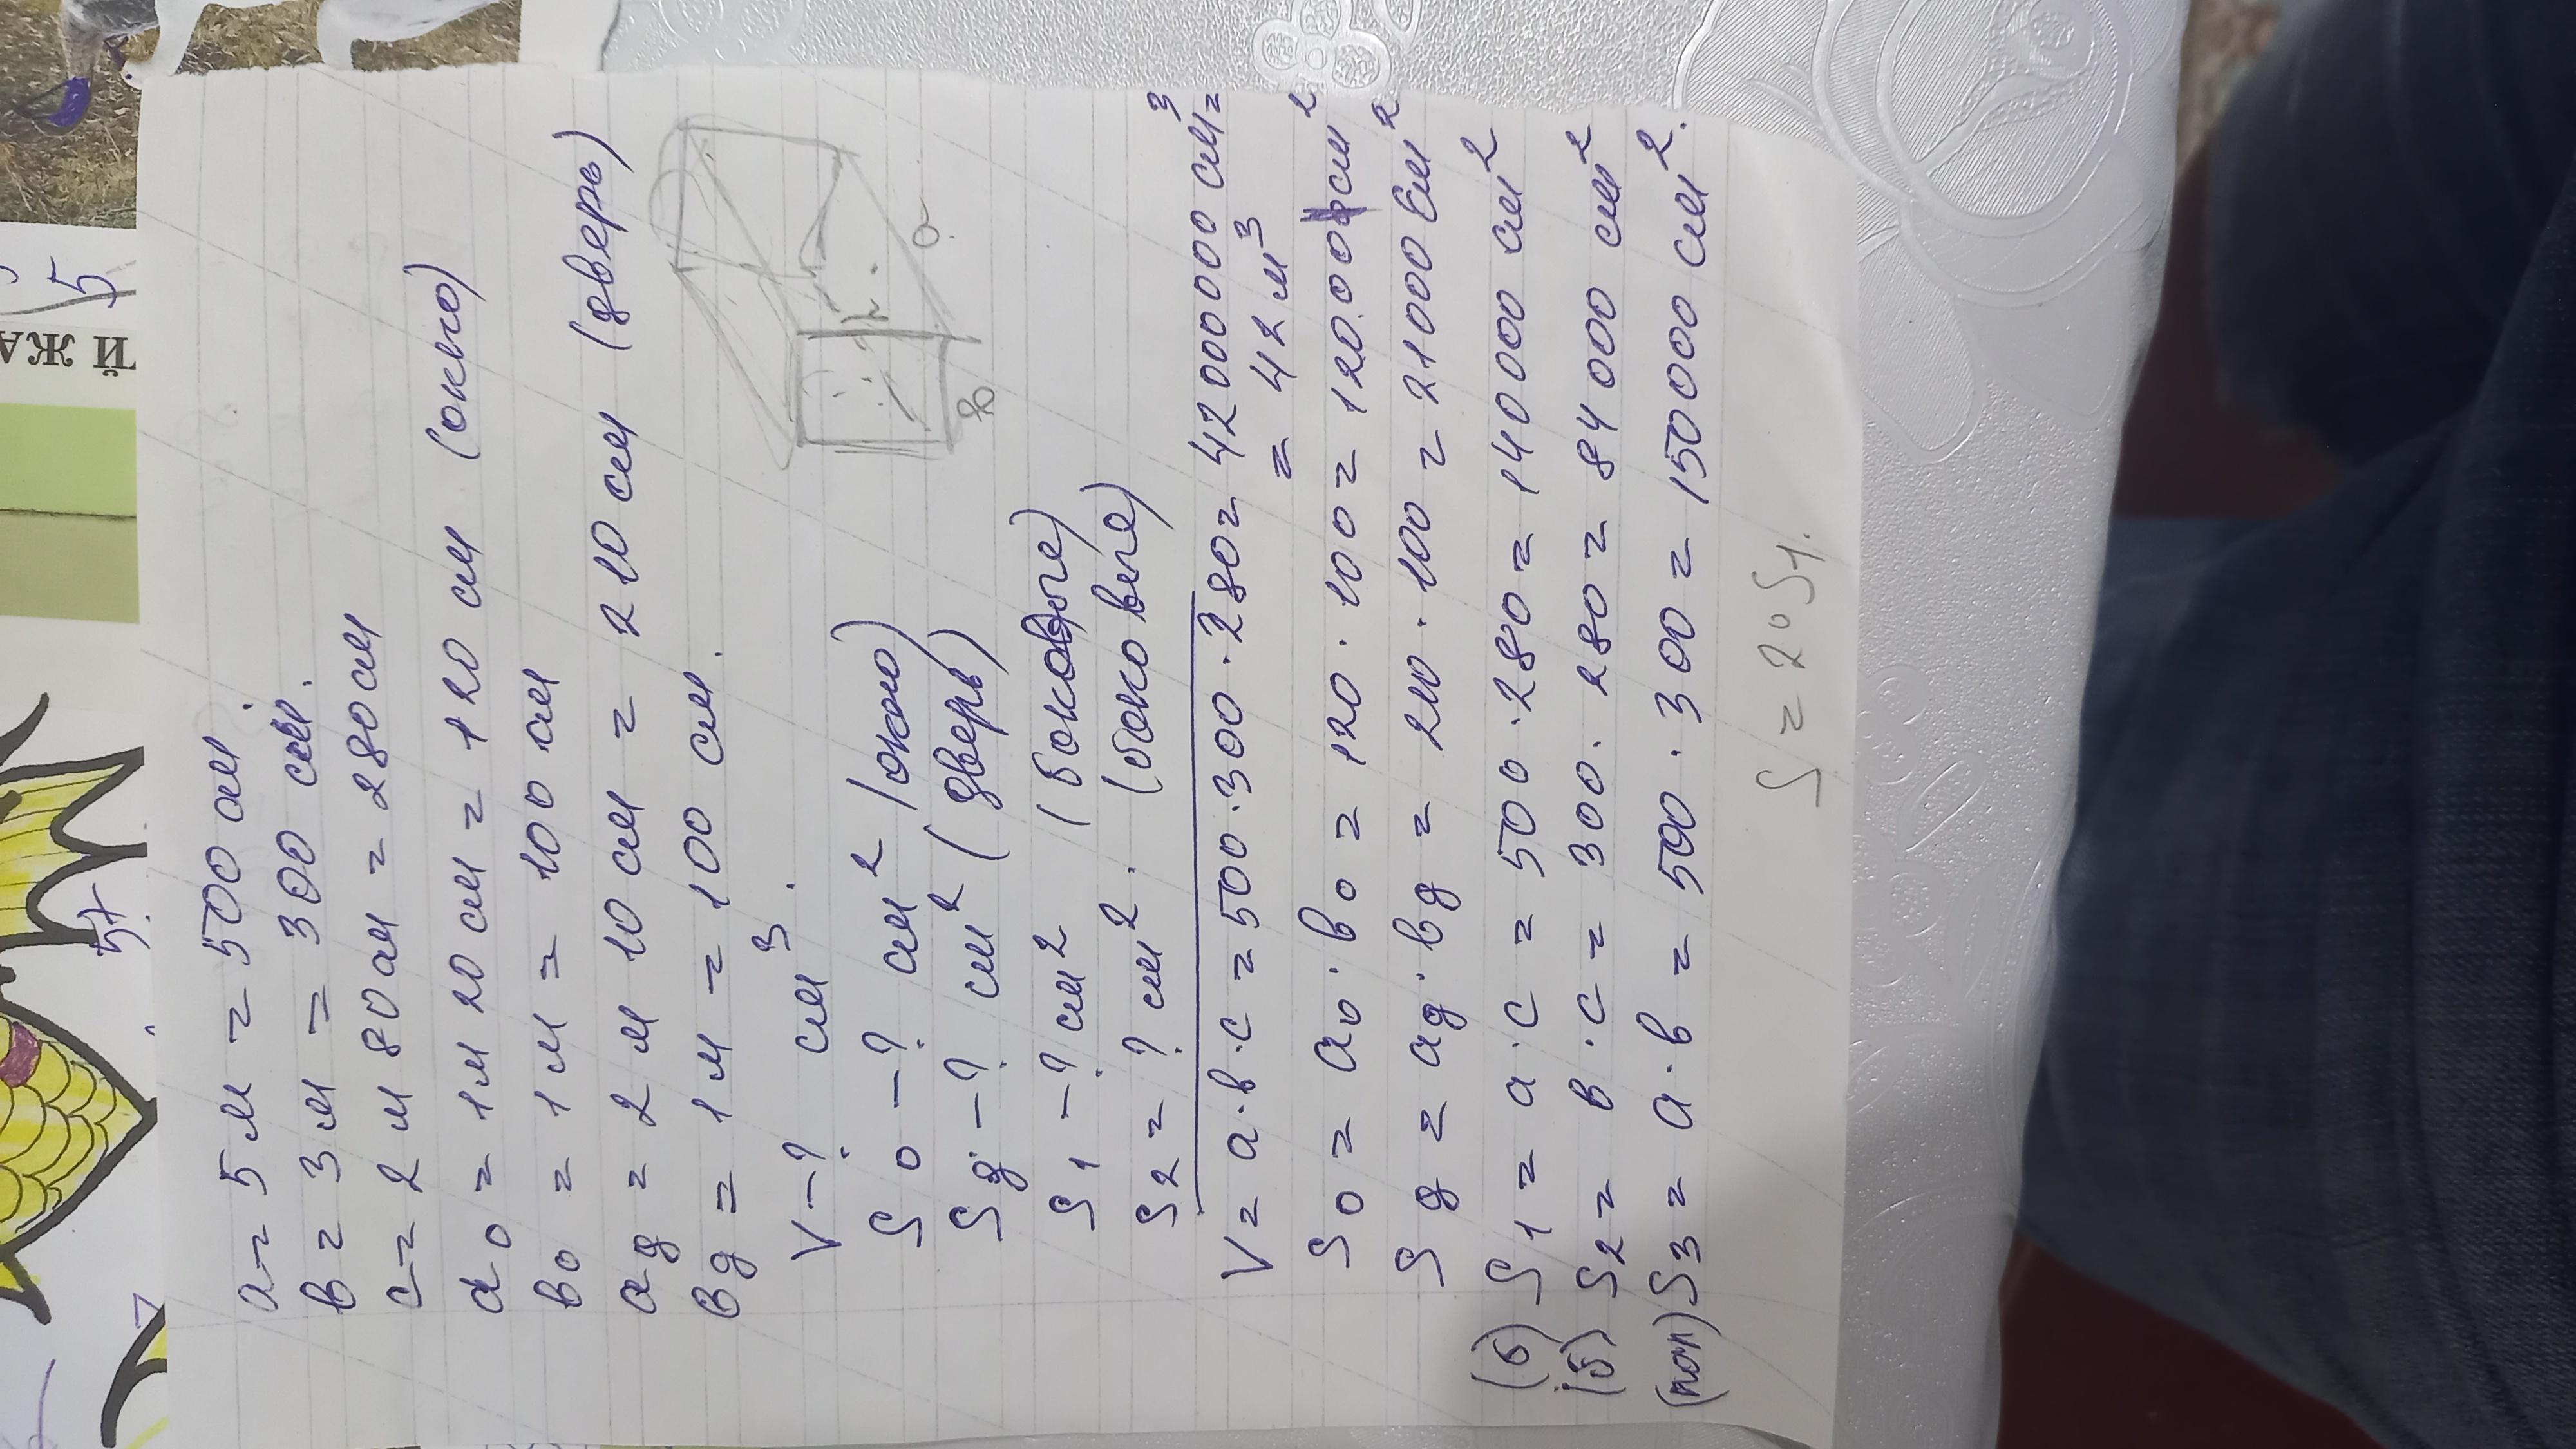 a = 5 м = 500 см.
в = 3 м = 300 см.
с = 2 м 80 см = 280 см
a₀ = 1 м 20 см = 120 см (окно)
в₀ = 1 м = 100 см
aд = 2 м 10 см = 210 см (дверь)
вд = 1 м = 100 см.
V - ? см³.
S₀ - ? см² (окно)
Sд - ? см² (дверь)
S₁ - ? см² (боковые)
S₂ = ? см². (боковые)
а
в
V = a · в · с = 500 · 300 · 280 = 42 000 000 см³ =
= 42 м³
S₀ = a₀ · в₀ = 120 · 100 = 120.00 см²
Sд = aд · вд = 210 · 100 = 21000 см²
(б) S₁ = a · с = 500 · 280 = 140 000 см²
(б) S₂ = в · с = 300 · 280 = 84 000 см²
(пол) S₃ = a · в = 500 · 300 = 150000 см².
S = 2 · S₁.
ТЙ ЖА
5
57